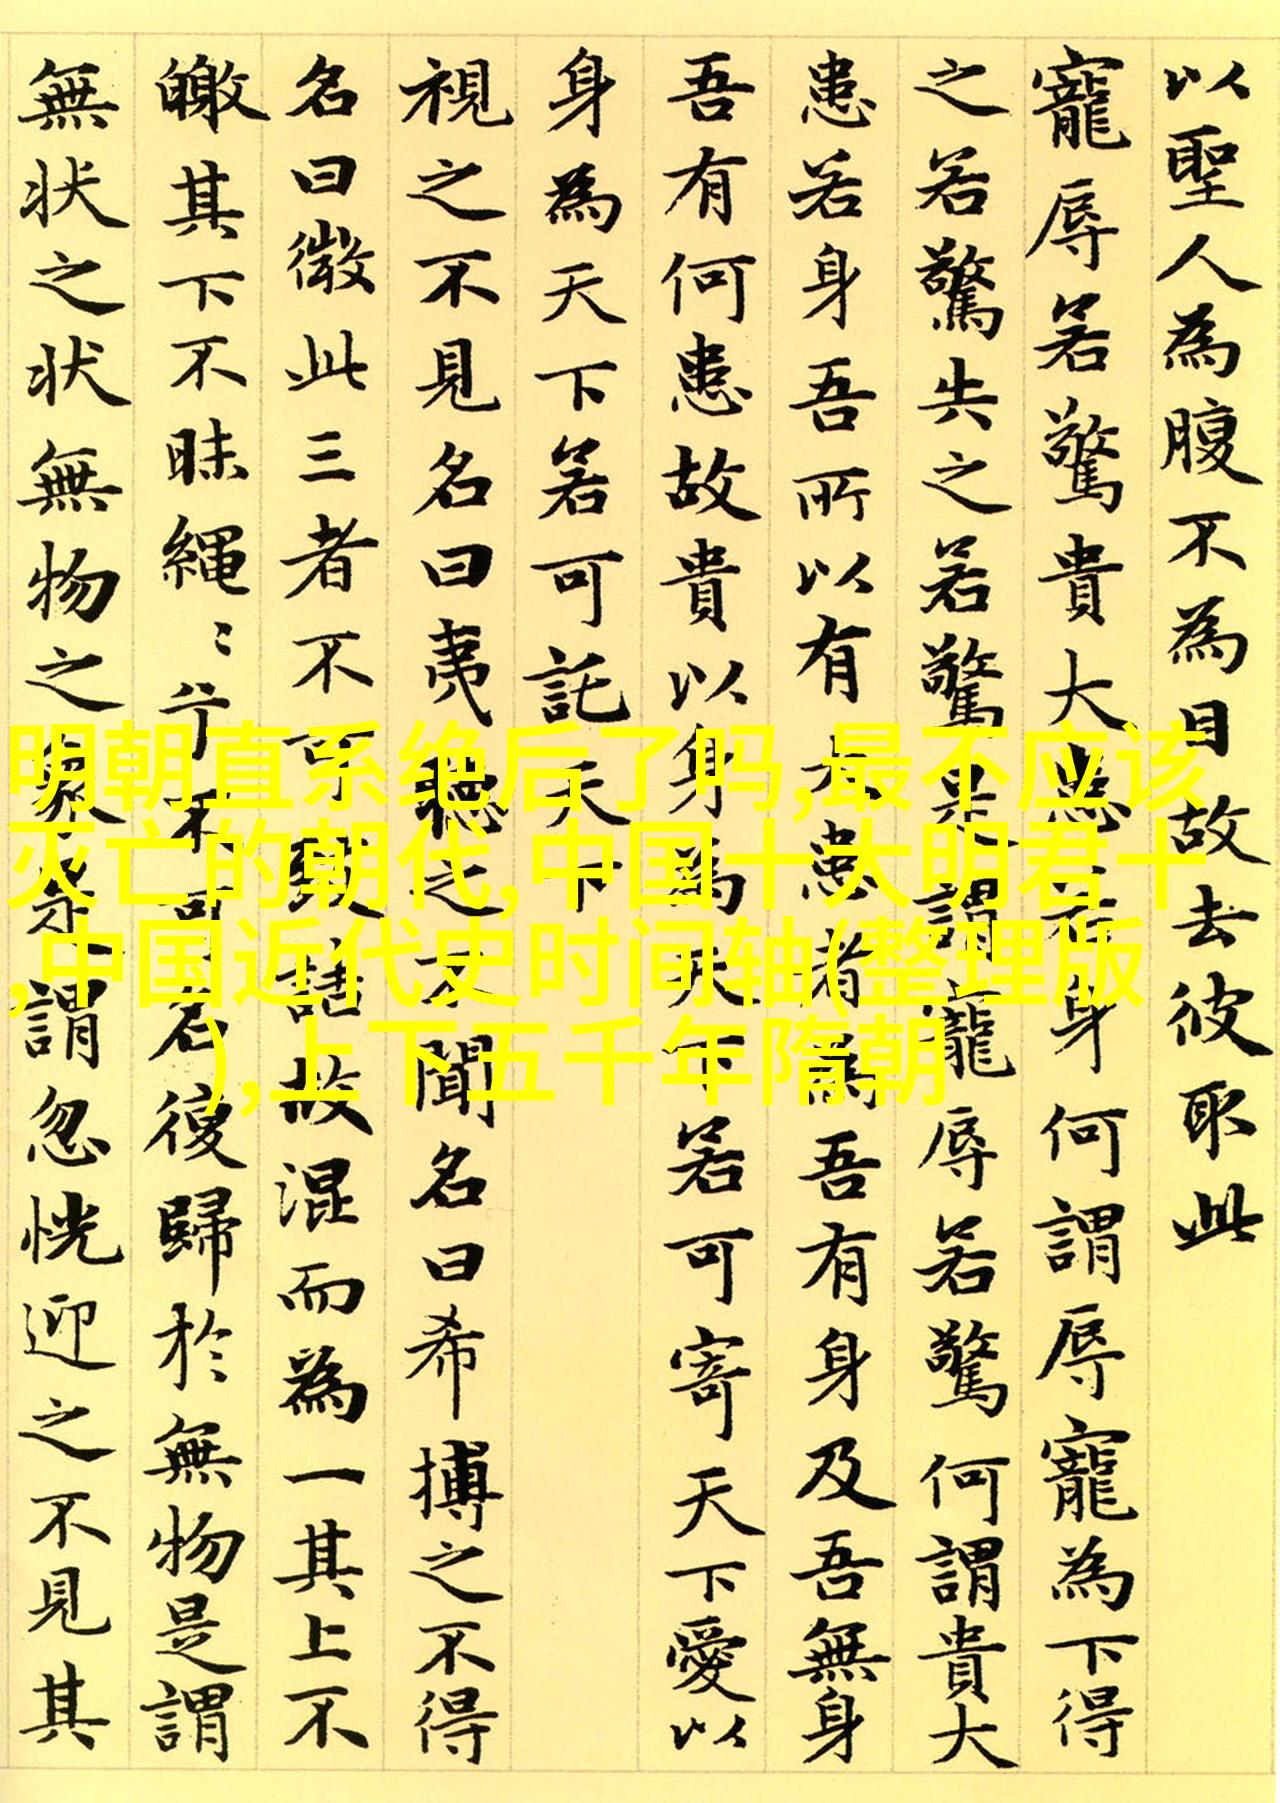 以聖人為腹不為目故去彼取此
寵辱若驚貴大患若身何謂辱寵為下得
之若驚失之若驚是謂寵辱若驚何謂貴大
患若身吾所以有大患者為吾有身及吾無身
吾有何患故貴以身為天下若可寄天下愛以
身為天下若可託天下
視之不見名曰夷聽之不聞名曰希搏之不得
名曰微此三者不可致詰故混而為一其上不
皦其下不昧繩〻兮不可名復歸於無物是謂
無狀之狀無物之象是謂忽恍迎之不見其
明朝直系绝后了吗,最不应该
灭亡的朝代,中国十大明君十
,中国近代史时间轴(整理版
),上下五千年隋朝